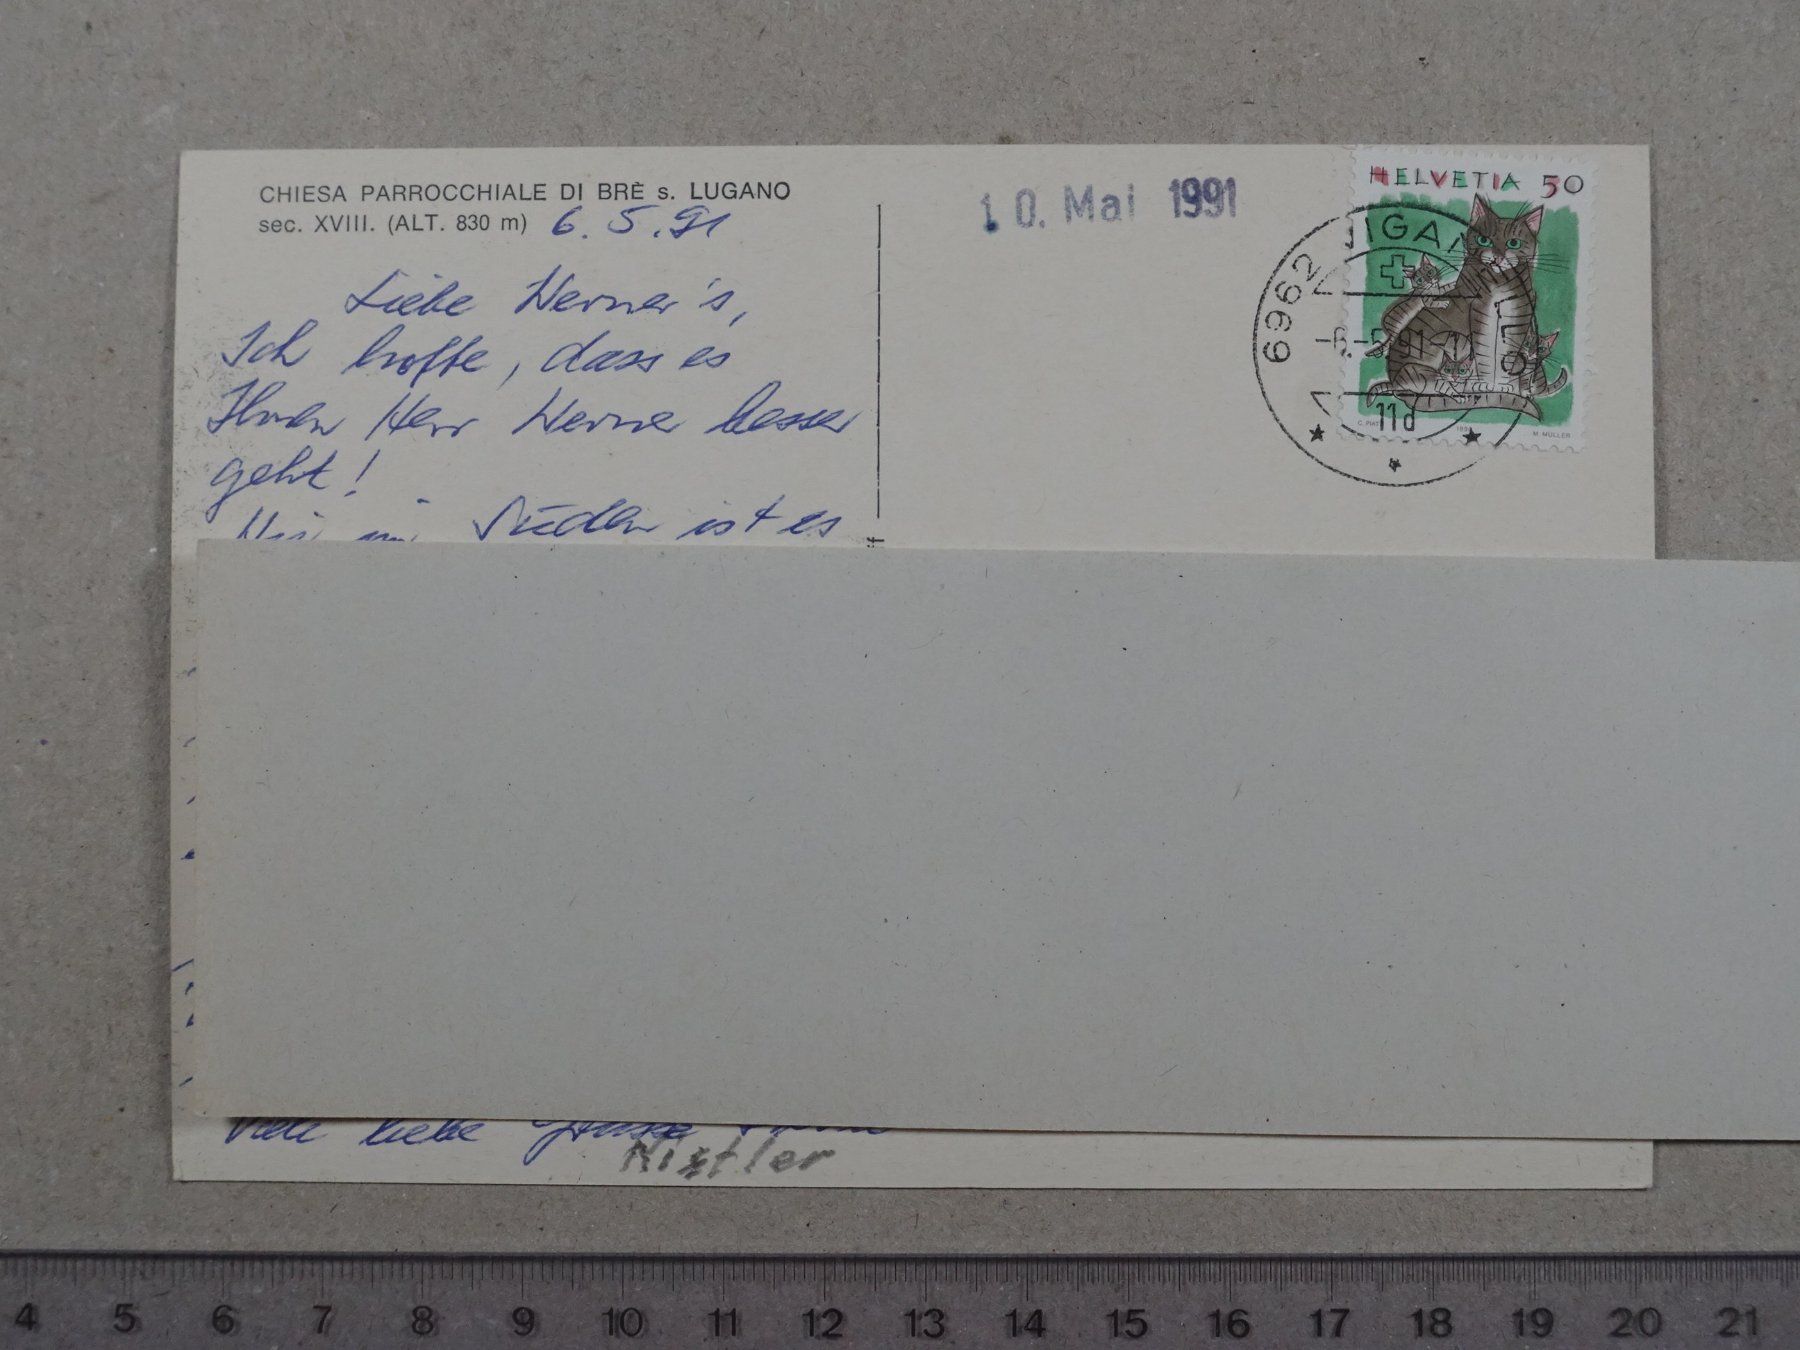 CHIESA PARROCCHIALE DI BRÈ s. LUGANO
sec. XVIII. (ALT. 830 m) 6. 5. 91
Liebe Werner's,
Ich hoffe, dass es
Ihnen Herr Werner besser
geht!
Süden ist es
Viele liebe Grüsse
Nistler
10. Mai 1991
HELVETIA 50
6962
-6.-5.91
11d
M. MÜLLER
4 5 6 7 8 9 10 11 12 13 14 15 16 17 18 19 20 21